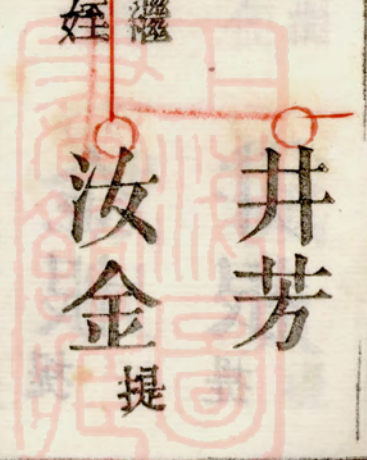 井芳
繼
姪
汝金
提